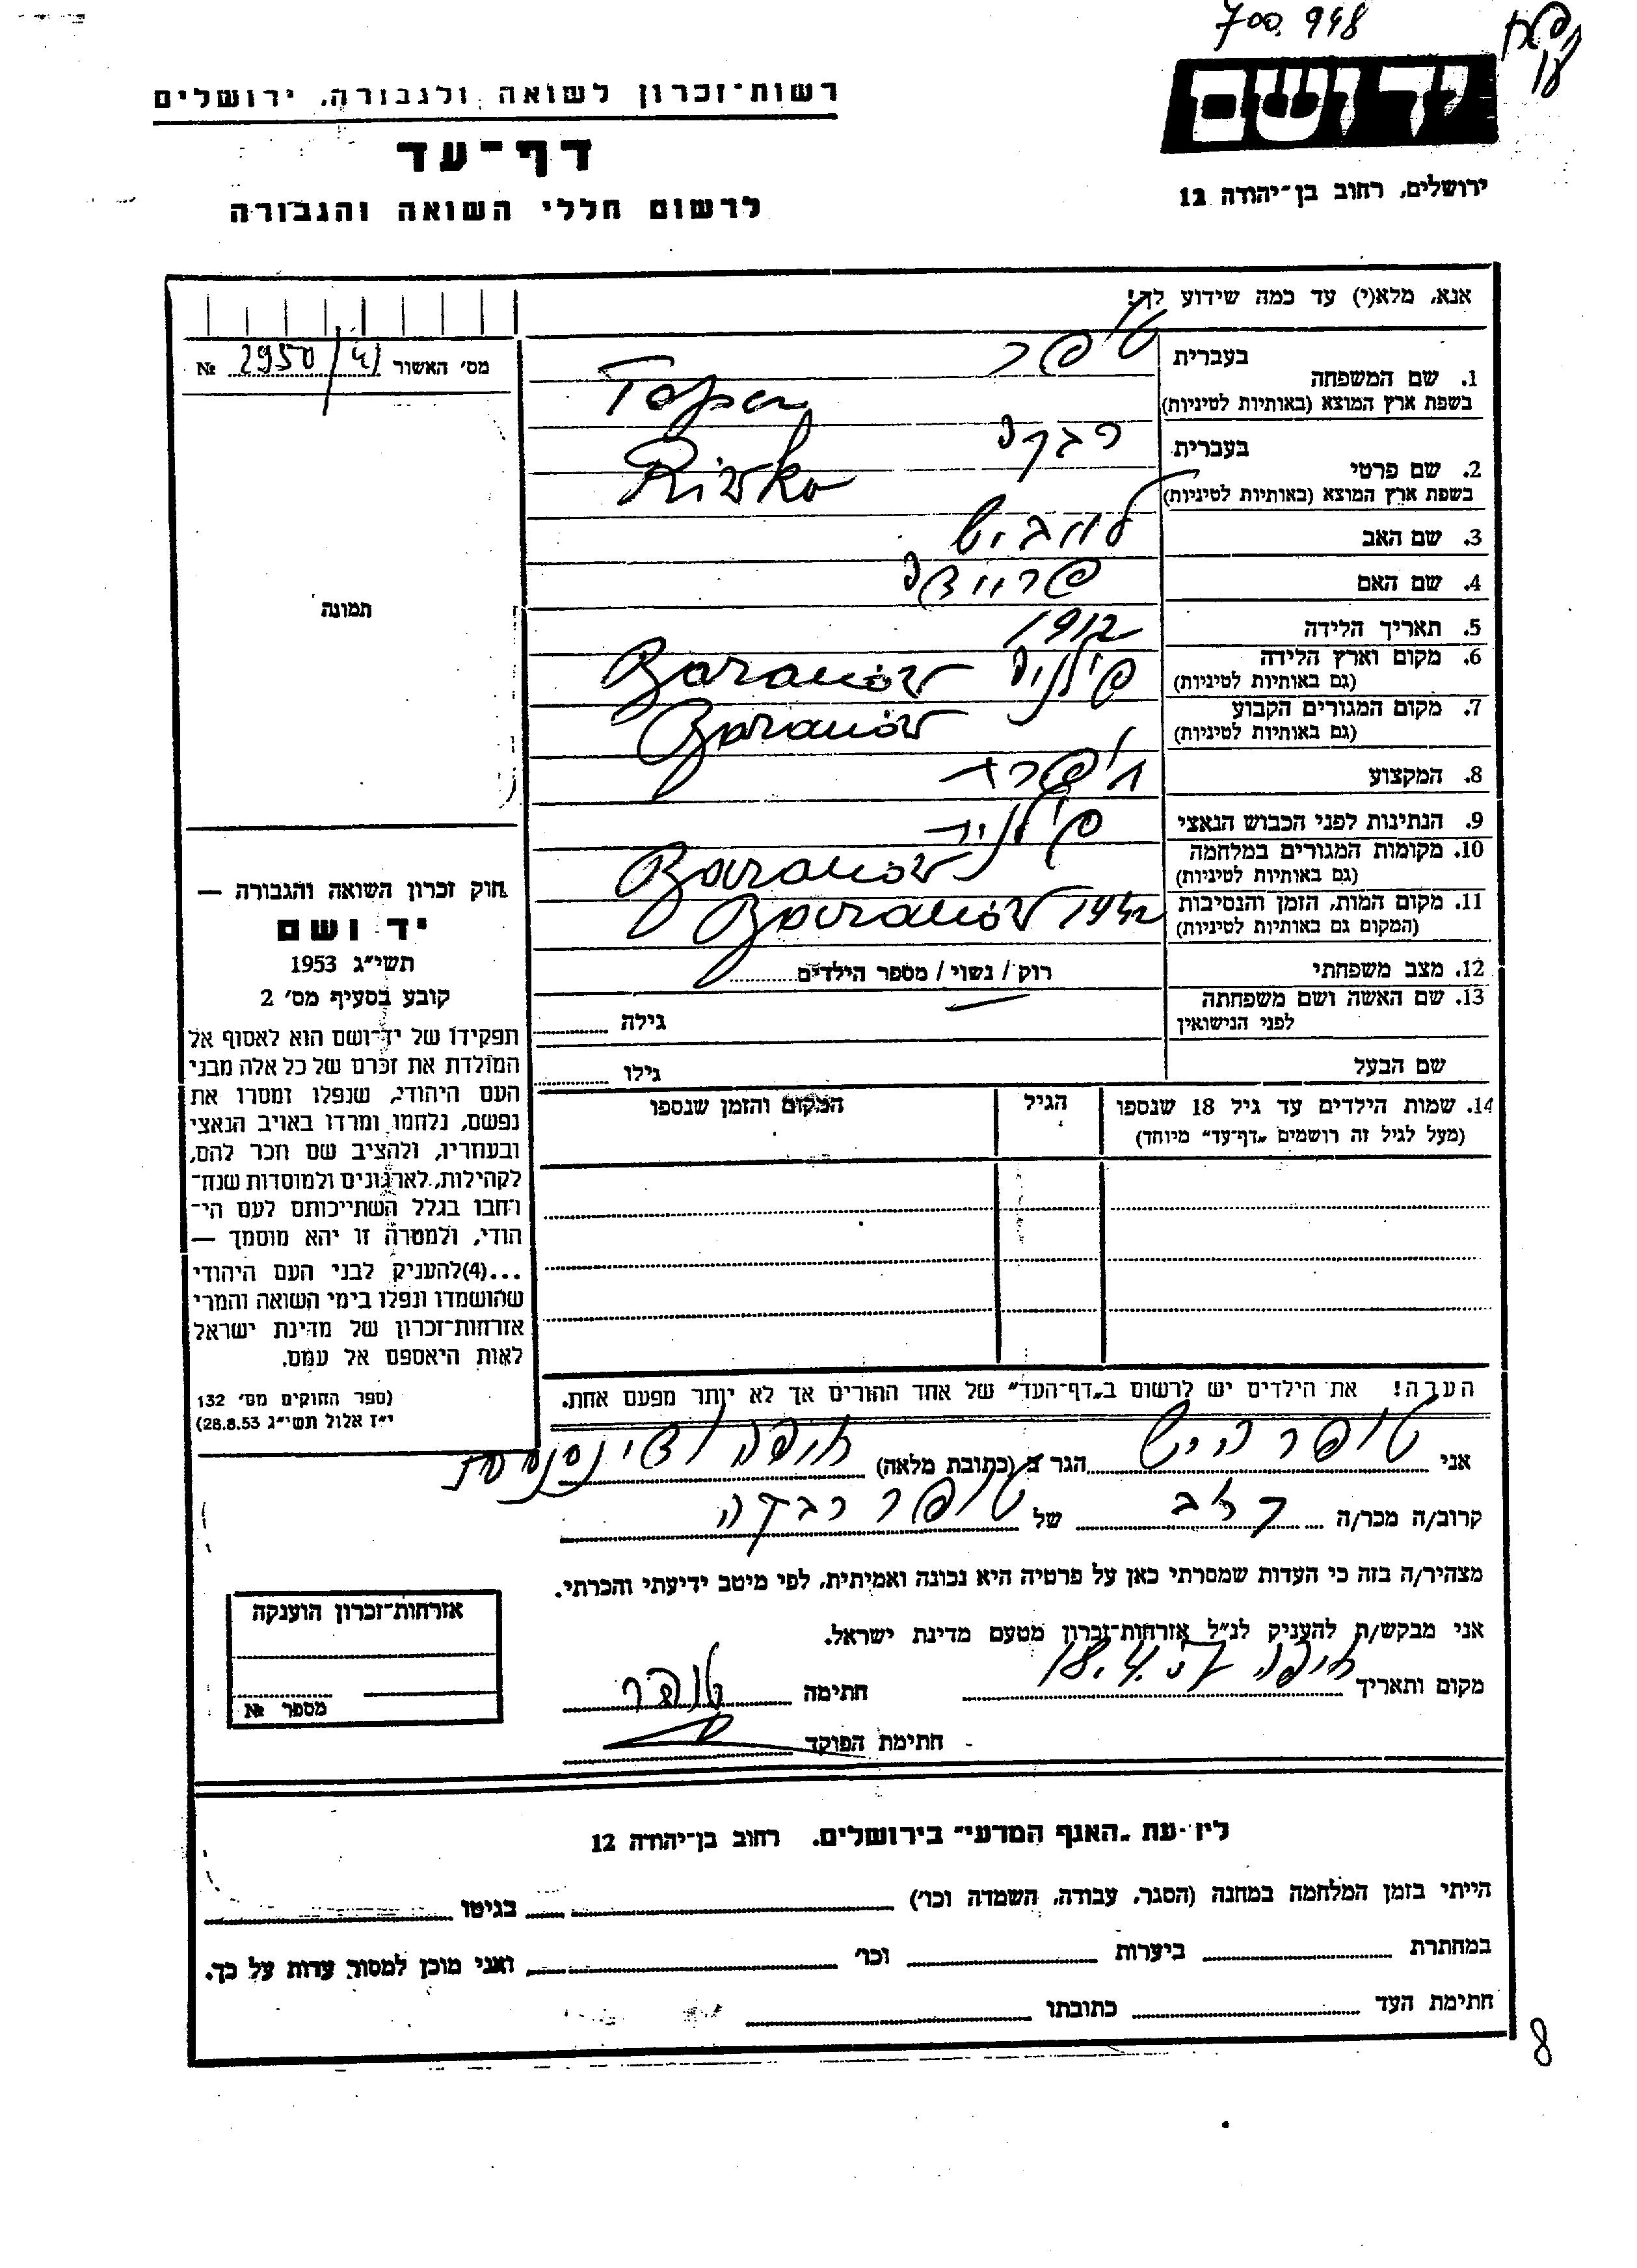 700.948
יד ושם
ירושלים, רחוב בן־יהודה 12
רשות־זכרון לשואה ולגבורה, ירושלים
דף־עד
לרשום חללי השואה והגבורה
אנא, מלא(י) עד כמה שידוע לך!
מס׳ האשור 2950/41 №
1. שם המשפחה בעברית טופר
בשפת ארץ המוצא (באותיות לטיניות) Toper
2. שם פרטי בעברית רבקה
בשפת ארץ המוצא (באותיות לטיניות) Rivka
3. שם האב לייביש
4. שם האם פריידה
5. תאריך הלידה 1912
6. מקום וארץ הלידה פולניה Baranów
(גם באותיות לטיניות)
7. מקום המגורים הקבוע Baranów
(גם באותיות לטיניות)
8. המקצוע
9. הנתינות לפני הכבוש הנאצי פולנית
10. מקומות המגורים במלחמה Baranów
(גם באותיות לטיניות)
11. מקום המות, הזמן והנסיבות 1942 Baranów
(המקום גם באותיות לטיניות)
12. מצב משפחתי רוק / נשוי / מספר הילדים
13. שם האשה ושם משפחתה
לפני הנישואין גילה
שם הבעל גילו
14. שמות הילדים עד גיל 18 שנספו
(מעל לגיל זה רושמים „דף־עד״ מיוחד)
הגיל
המקום והזמן שנספו
תמונה
חוק זכרון השואה והגבורה —
יד ושם
תשי״ג 1953
קובע בסעיף מס׳ 2
תפקידו של יד־ושם הוא לאסוף אל
המולדת את זכרם של כל אלה מבני
העם היהודי, שנפלו ומסרו את
נפשם, נלחמו ומרדו באויב הנאצי
ובעוזריו, ולהציב שם וזכר להם,
לקהילות, לארגונים ולמוסדות שנח־
רבו בגלל השתייכותם לעם הי־
הודי, ולמטרה זו יהא מוסמך —
...(4) להעניק לבני העם היהודי
שהושמדו ונפלו בימי השואה והמרי
אזרחות־זכרון של מדינת ישראל
לאות היאספם אל עמם.
(ספר החוקים מס׳ 132
י״ז אלול תשי״ג 28.8.53)
הערה! את הילדים יש לרשום ב„דף־העד״ של אחד ההורים אך לא יותר מפעם אחת.
אני טופר הירש הגר ב (כתובת מלאה) חיפה
קרוב/ה מכר/ה קרוב של טופר רבקה
מצהיר/ה בזה כי העדות שמסרתי כאן על פרטיה היא נכונה ואמיתית, לפי מיטב ידיעתי והכרתי.
אני מבקש/ת להעניק לנ״ל אזרחות־זכרון מטעם מדינת ישראל.
מקום ותאריך חיפה 18.4.57 חתימה טופר
חתימת הפוקד
אזרחות־זכרון הוענקה
מספר №
לידיעת „האגף המדעי״ בירושלים. רחוב בן־יהודה 12
הייתי בזמן המלחמה במחנה (הסגר, עבודה, השמדה וכו׳) בגיטו
במחתרת ביערות וכו׳ ואני מוכן למסור עדות על כך.
חתימת העד כתובתו
8